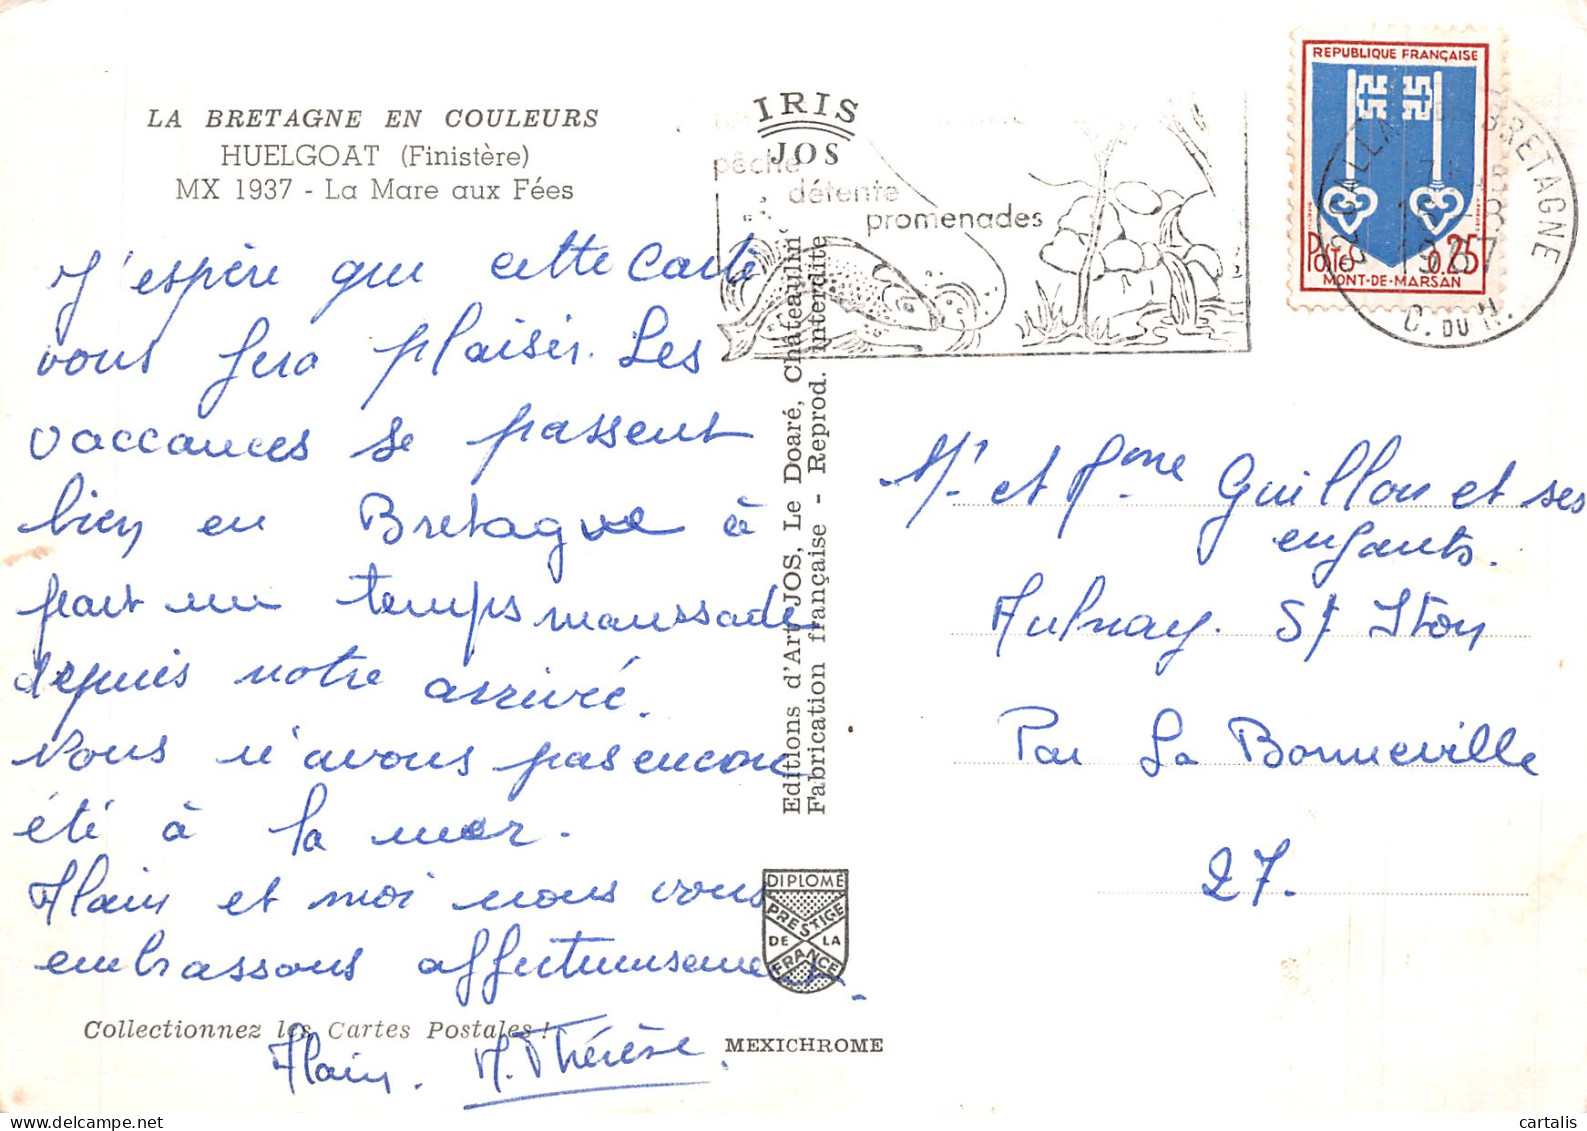 LA BRETAGNE EN COULEURS
HUELGOAT (Finistère)
MX 1937 - La Mare aux Fées
J'espère que cette carte
vous fera plaisir. Les
vaccances se passent
bien en Bretagne à
part un temps maussade
depuis notre arrivée.
Nous n'avons pas encore
été à la mer.
Alain et moi nous vous
embrassons affectueusement.
Alain. M. Thérèse.
Collectionnez les Cartes Postales !
IRIS
JOS
pêche
détente
promenades
Editions d'Art JOS, Le Doaré, Châteaulin
Fabrication française - Reprod. interdite
DIPLOME
PRESTIGE
DE LA
FRANCE
MEXICHROME
REPUBLIQUE FRANÇAISE
Poste 0.25
MONT-DE-MARSAN
BRETAGNE
1967
C. DU N.
Mr et Mme Guillon et ses
enfants.
Aulnay. St Iton
Par La Bonneville
27.
cartalis
delcampe.net